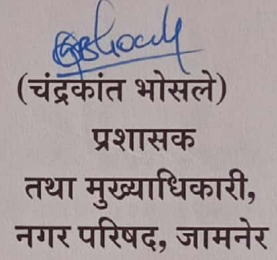 (चंद्रकांत भोसले)
प्रशासक
तथा मुख्याधिकारी,
नगर परिषद, जामनेर